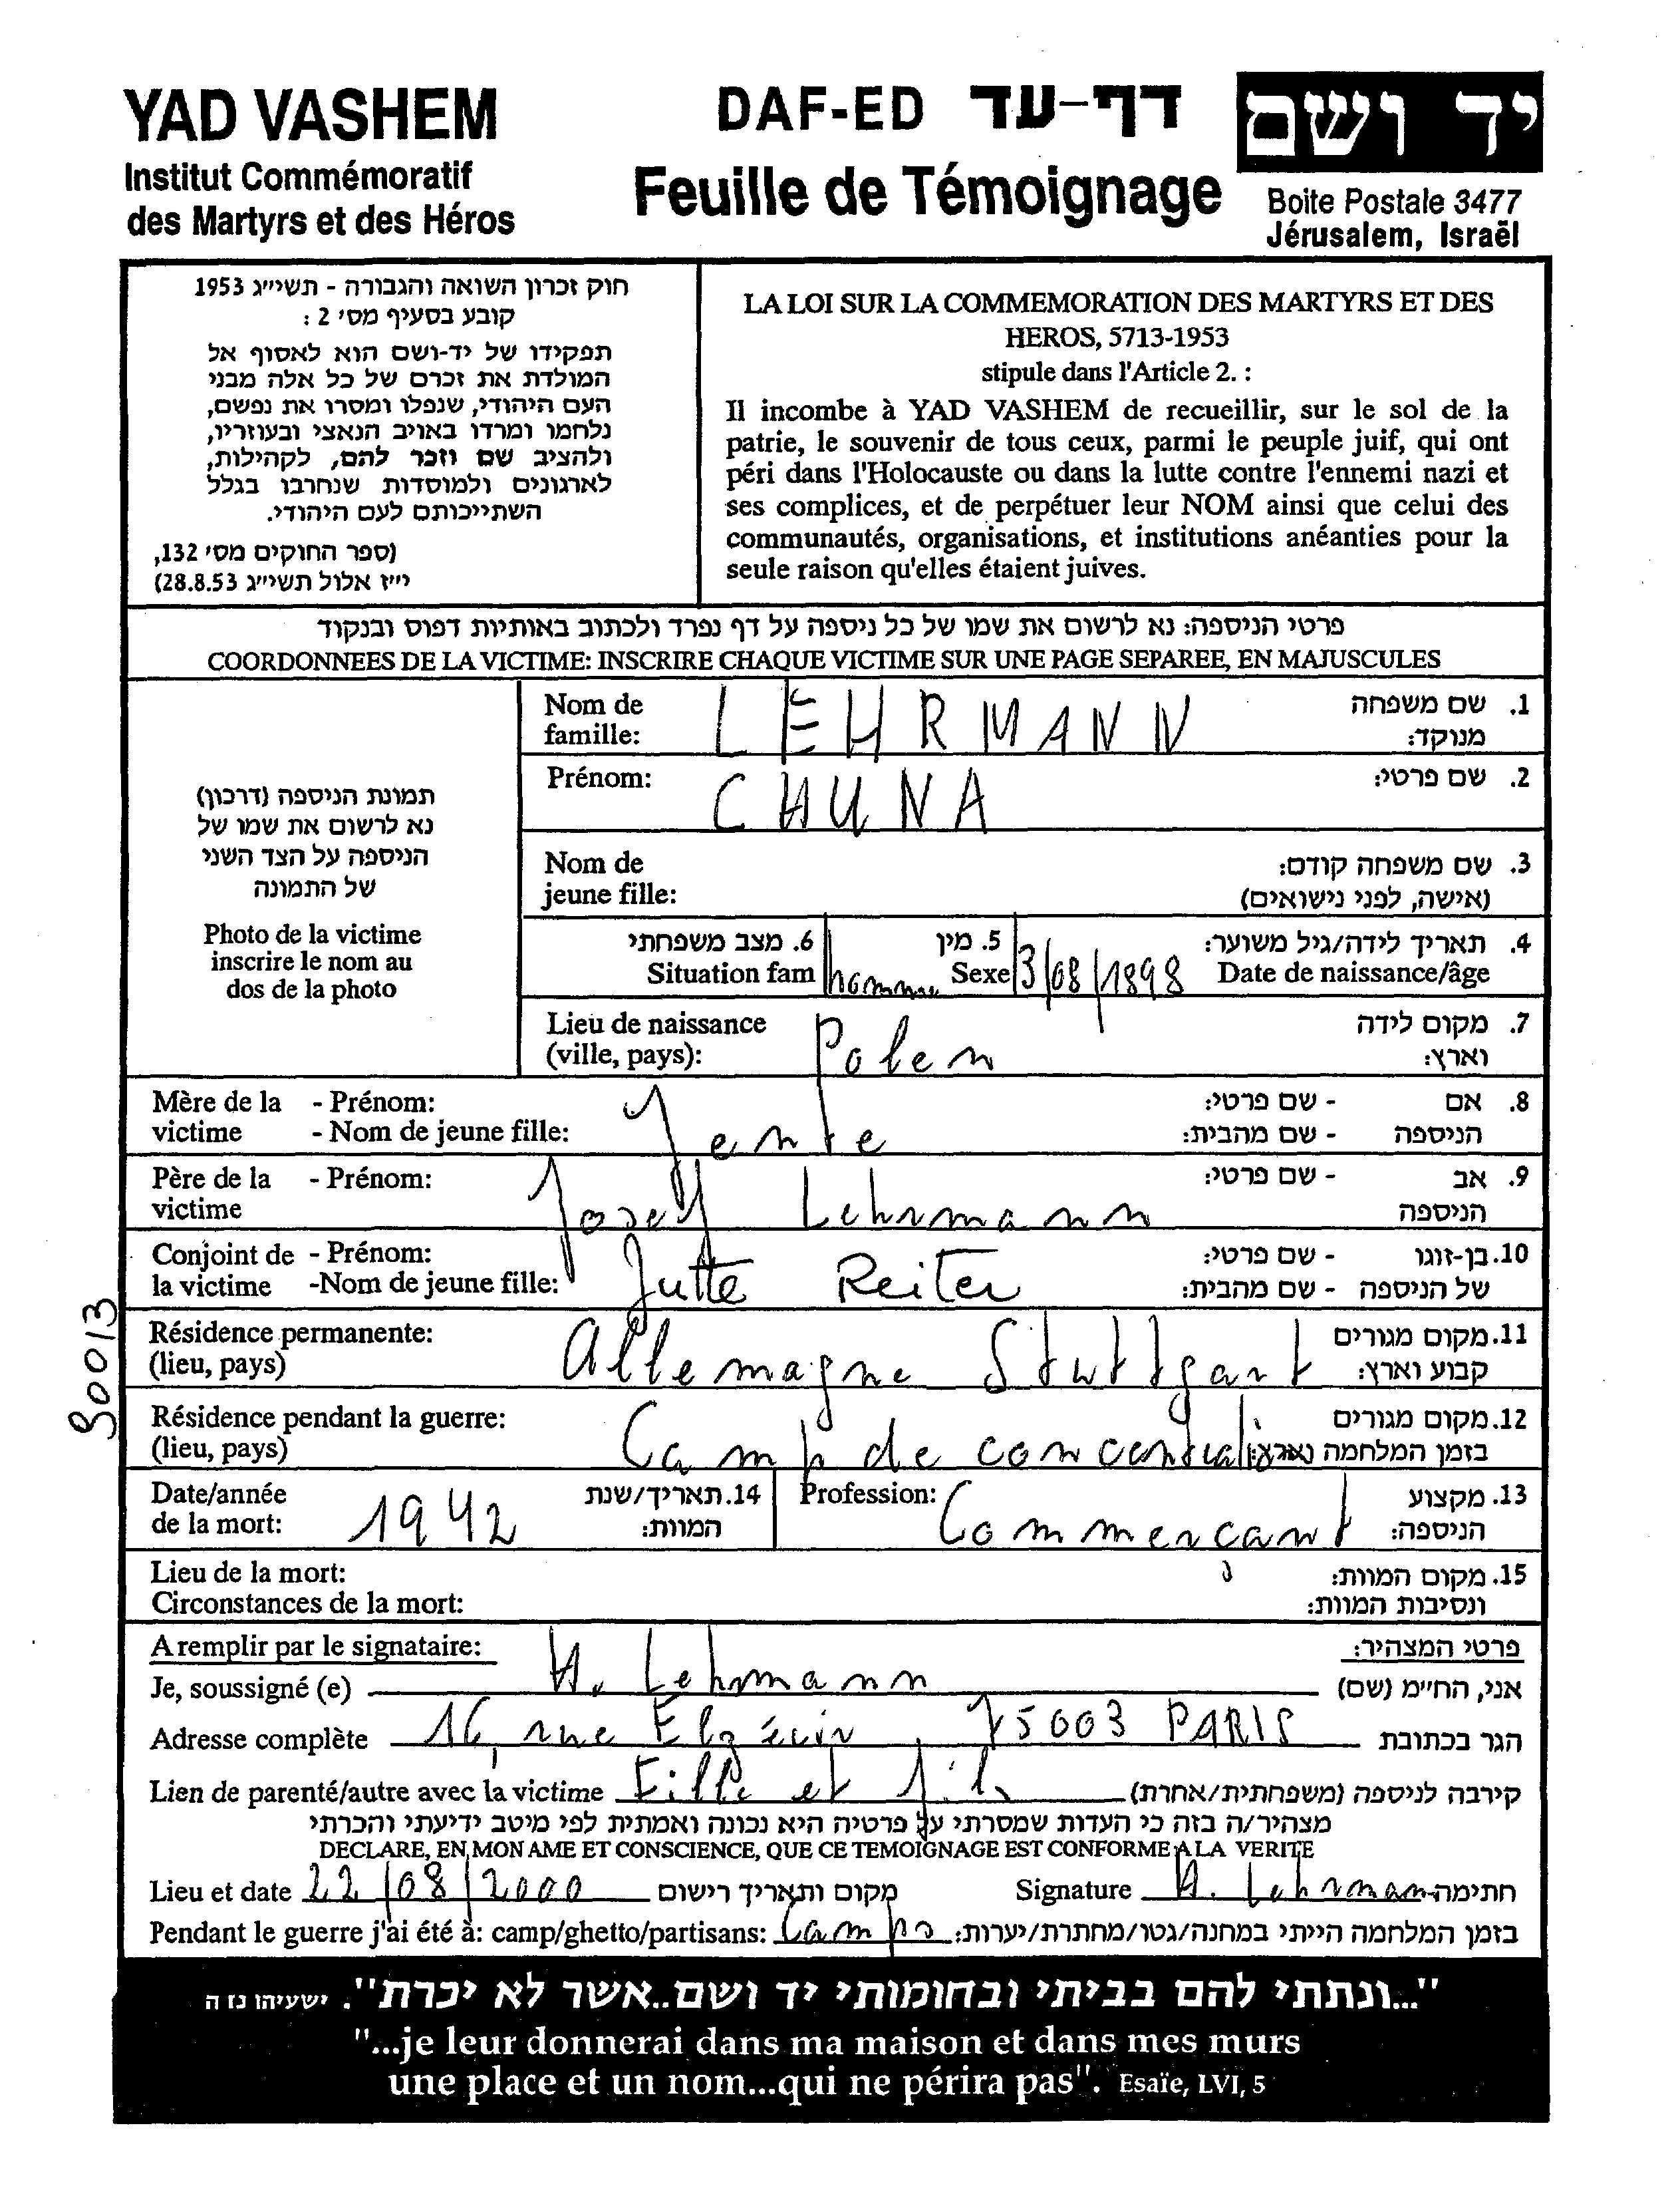 YAD VASHEM
Institut Commémoratif
des Martyrs et des Héros
DAF-ED דף-עד
Feuille de Témoignage
יד ושם
Boite Postale 3477
Jérusalem, Israël
חוק זכרון השואה והגבורה - תשי״ג 1953
קובע בסעיף מס׳ 2 :
תפקידו של יד-ושם הוא לאסוף אל
המולדת את זכרם של כל אלה מבני
העם היהודי, שנפלו ומסרו את נפשם,
נלחמו ומרדו באויב הנאצי ובעוזריו,
ולהציב שם וזכר להם, לקהילות,
לארגונים ולמוסדות שנחרבו בגלל
השתייכותם לעם היהודי.
(ספר החוקים מס׳ 132,
י״ז אלול תשי״ג 28.8.53)
LA LOI SUR LA COMMEMORATION DES MARTYRS ET DES
HEROS, 5713-1953
stipule dans l'Article 2. :
Il incombe à YAD VASHEM de recueillir, sur le sol de la
patrie, le souvenir de tous ceux, parmi le peuple juif, qui ont
péri dans l'Holocauste ou dans la lutte contre l'ennemi nazi et
ses complices, et de perpétuer leur NOM ainsi que celui des
communautés, organisations, et institutions anéanties pour la
seule raison qu'elles étaient juives.
פרטי הניספה: נא לרשום את שמו של כל ניספה על דף נפרד ולכתוב באותיות דפוס ובנקוד
COORDONNEES DE LA VICTIME: INSCRIRE CHAQUE VICTIME SUR UNE PAGE SEPAREE, EN MAJUSCULES
תמונת הניספה (דרכון)
נא לרשום את שמו של
הניספה על הצד השני
של התמונה
Photo de la victime
inscrire le nom au
dos de la photo
Nom de LEHRMANN 1. שם משפחה
famille: מנוקד:
Prénom: CHUNA 2. שם פרטי:
Nom de 3. שם משפחה קודם:
jeune fille: (אישה, לפני נישואים)
6. מצב משפחתי 5. מין 4. תאריך לידה/גיל משוער:
Situation fam homme Sexe 3/08/1898 Date de naissance/âge
Lieu de naissance Polen 7. מקום לידה
(ville, pays): וארץ:
Mère de la - Prénom: 8. אם - שם פרטי:
victime - Nom de jeune fille: Jente הניספה - שם מהבית:
Père de la - Prénom: 9. אב - שם פרטי:
victime Josef Lehrmann הניספה
Conjoint de - Prénom: 10. בן-זוגו - שם פרטי:
la victime -Nom de jeune fille: Jutte Reiter של הניספה - שם מהבית:
Résidence permanente: 11. מקום מגורים
(lieu, pays) Allemagne Stuttgart קבוע וארץ:
Résidence pendant la guerre: 12. מקום מגורים
(lieu, pays) Camp de concentrati בזמן המלחמה וארץ:
Date/année 14. תאריך/שנת Profession: 13. מקצוע
de la mort: 1942 המוות: Commerçant הניספה:
Lieu de la mort: 15. מקום המוות:
Circonstances de la mort: ונסיבות המוות:
90013
A remplir par le signataire: פרטי המצהיר:
Je, soussigné (e) H. Lehrmann אני, החי״מ (שם)
Adresse complète 16, rue Elzévir 75003 PARIS הגר בכתובת
Lien de parenté/autre avec la victime Fille et fils קירבה לניספה (משפחתית/אחרת)
מצהיר/ה בזה כי העדות שמסרתי על פרטיה היא נכונה ואמתית לפי מיטב ידיעתי והכרתי
DECLARE, EN MON AME ET CONSCIENCE, QUE CE TEMOIGNAGE EST CONFORME A LA VERITE
Lieu et date 22/08/2000 מקום ותאריך רישום Signature H. Lehrmann חתימה
Pendant la guerre j'ai été à: camp/ghetto/partisans: Camps בזמן המלחמה הייתי במחנה/גטו/מחתרת/יערות:
"...ונתתי להם בביתי ובחומותי יד ושם..אשר לא יכרת". ישעיהו נז ה
"...je leur donnerai dans ma maison et dans mes murs
une place et un nom...qui ne périra pas". Esaïe, LVI, 5